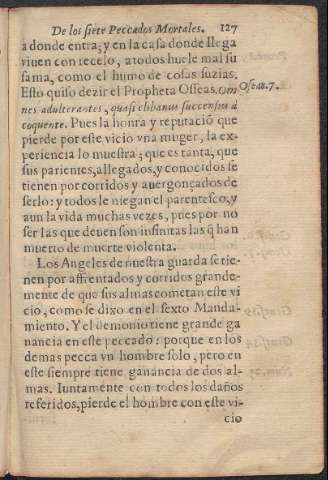 De los siete Peccados Mortales. 127
a donde entra; y en la casa donde llega
viuen con recelo, a todos huele mal su
fama, como el humo de cosas suzias.
Esto quiso dezir el Propheta Osseas. Om
nes adulterantes, quasi clibanus succensus à
coquente. Pues la honra y reputaciõ que
pierde por este vicio vna muger, la ex-
periencia lo muestra; que es tanta, que
sus parientes, allegados, y conocidos se
tienen por corridos y auergonçados de
serlo: y todos le niegan el parentesco, y
aun la vida muchas vezes, pues por no
ser las que deuen son infinitas las q̃ han
muerto de muerte violenta.
Los Angeles de nuestra guarda se tie-
nen por affrentados y corridos grande-
mente de que sus almas cometan este vi
cio, como se dixo en el sexto Manda-
miento. Y el demonio tiene grande ga
nancia en este peccado: porque en los
demas pecca vn hombre solo, pero en
este siempre tiene ganancia de dos al-
mas. Iuntamente con todos los daños
referidos, pierde el hombre con este vi-
cio
Oseas. 7.